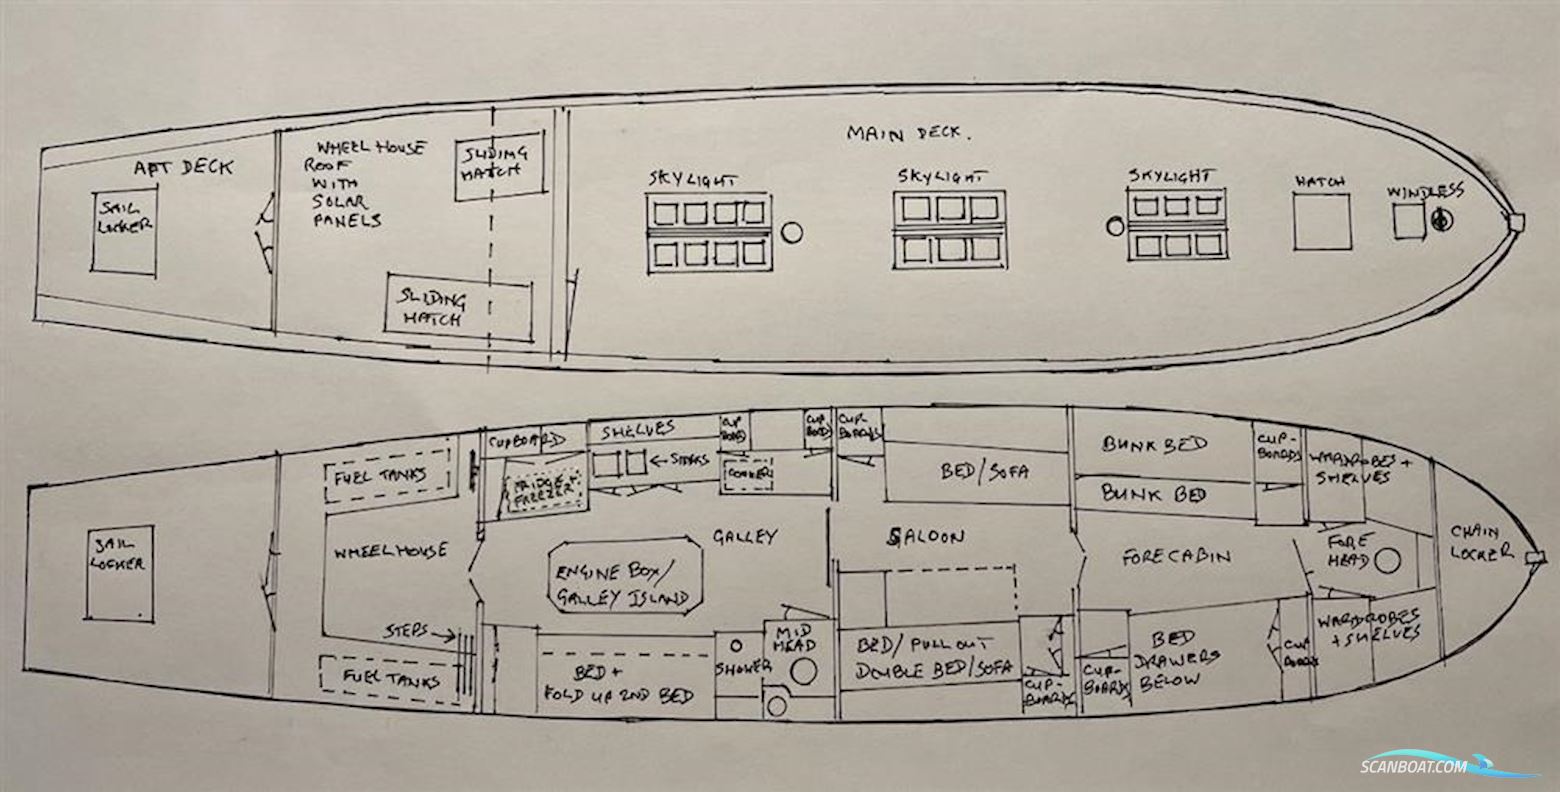 MAIN DECK.
AFT DECK
WHEELHOUSE
ROOF
WITH
SOLAR
PANELS
SLIDING
HATCH
SKYLIGHT
SKYLIGHT
SKYLIGHT
HATCH
WINDLESS
SAIL
LOCKER
SLIDING
HATCH
CUPBOARD
SHELVES
CUP
BOARD
CUP
BOARD
CUP-
BOARDS
BUNK BED
CUP-
BOARDS
WARDROBES +
SHELVES
FUEL TANKS
FRIDGE +
FREEZER
← SINKS
COOKER
BED/SOFA
BUNK BED
SAIL
LOCKER
WHEELHOUSE
GALLEY
SALOON
FORECABIN
FORE
HEAD
CHAIN
LOCKER
ENGINE BOX/
GALLEY ISLAND
STEPS →
FUEL TANKS
BED +
FOLD UP 2ND BED
SHOWER
MID
HEAD
BED/PULL OUT
DOUBLE BED/SOFA
CUP-
BOARDS
CUP-
BOARDS
BED
DRAWERS
BELOW
CUP
BOARDS
WARDROBES
+ SHELVES
SCANBOAT.COM